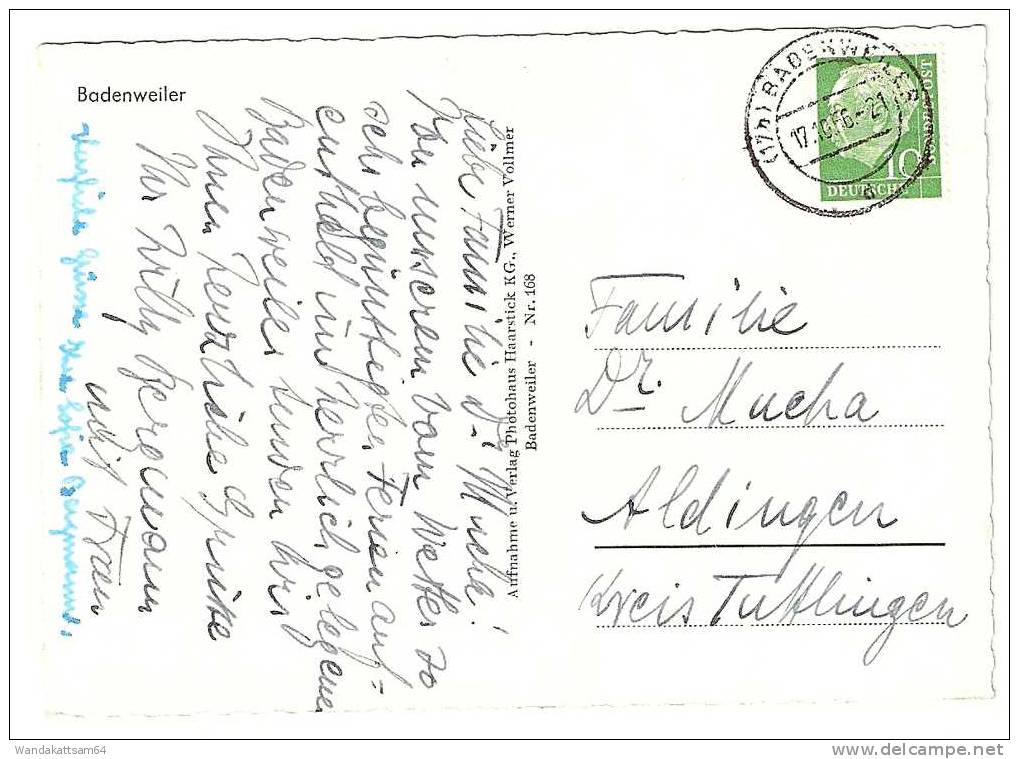 Badenweiler
Liebe Familie Dr. Mucha!
Von unserem vom Wetter so
sehr begünstigten Ferienauf=
enthalt im herrlich gelegenen
Badenweiler senden wir
Ihnen herzliche Grüsse
Ihr Willy Bergmann
mit Frau
Herzliche Grüsse Ihre Sofie Bergmann.
Aufnahme u. Verlag Photohaus Haarstick KG., Werner Vollmer
Badenweiler - Nr. 168
(17b) BADENWEILER
17.10.56.-21
b
10
DEUTSCHE
POST
Familie
Dr. Mucha
Aldingen
Kreis Tuttlingen
Wandakattsam64
www.delcampe.net